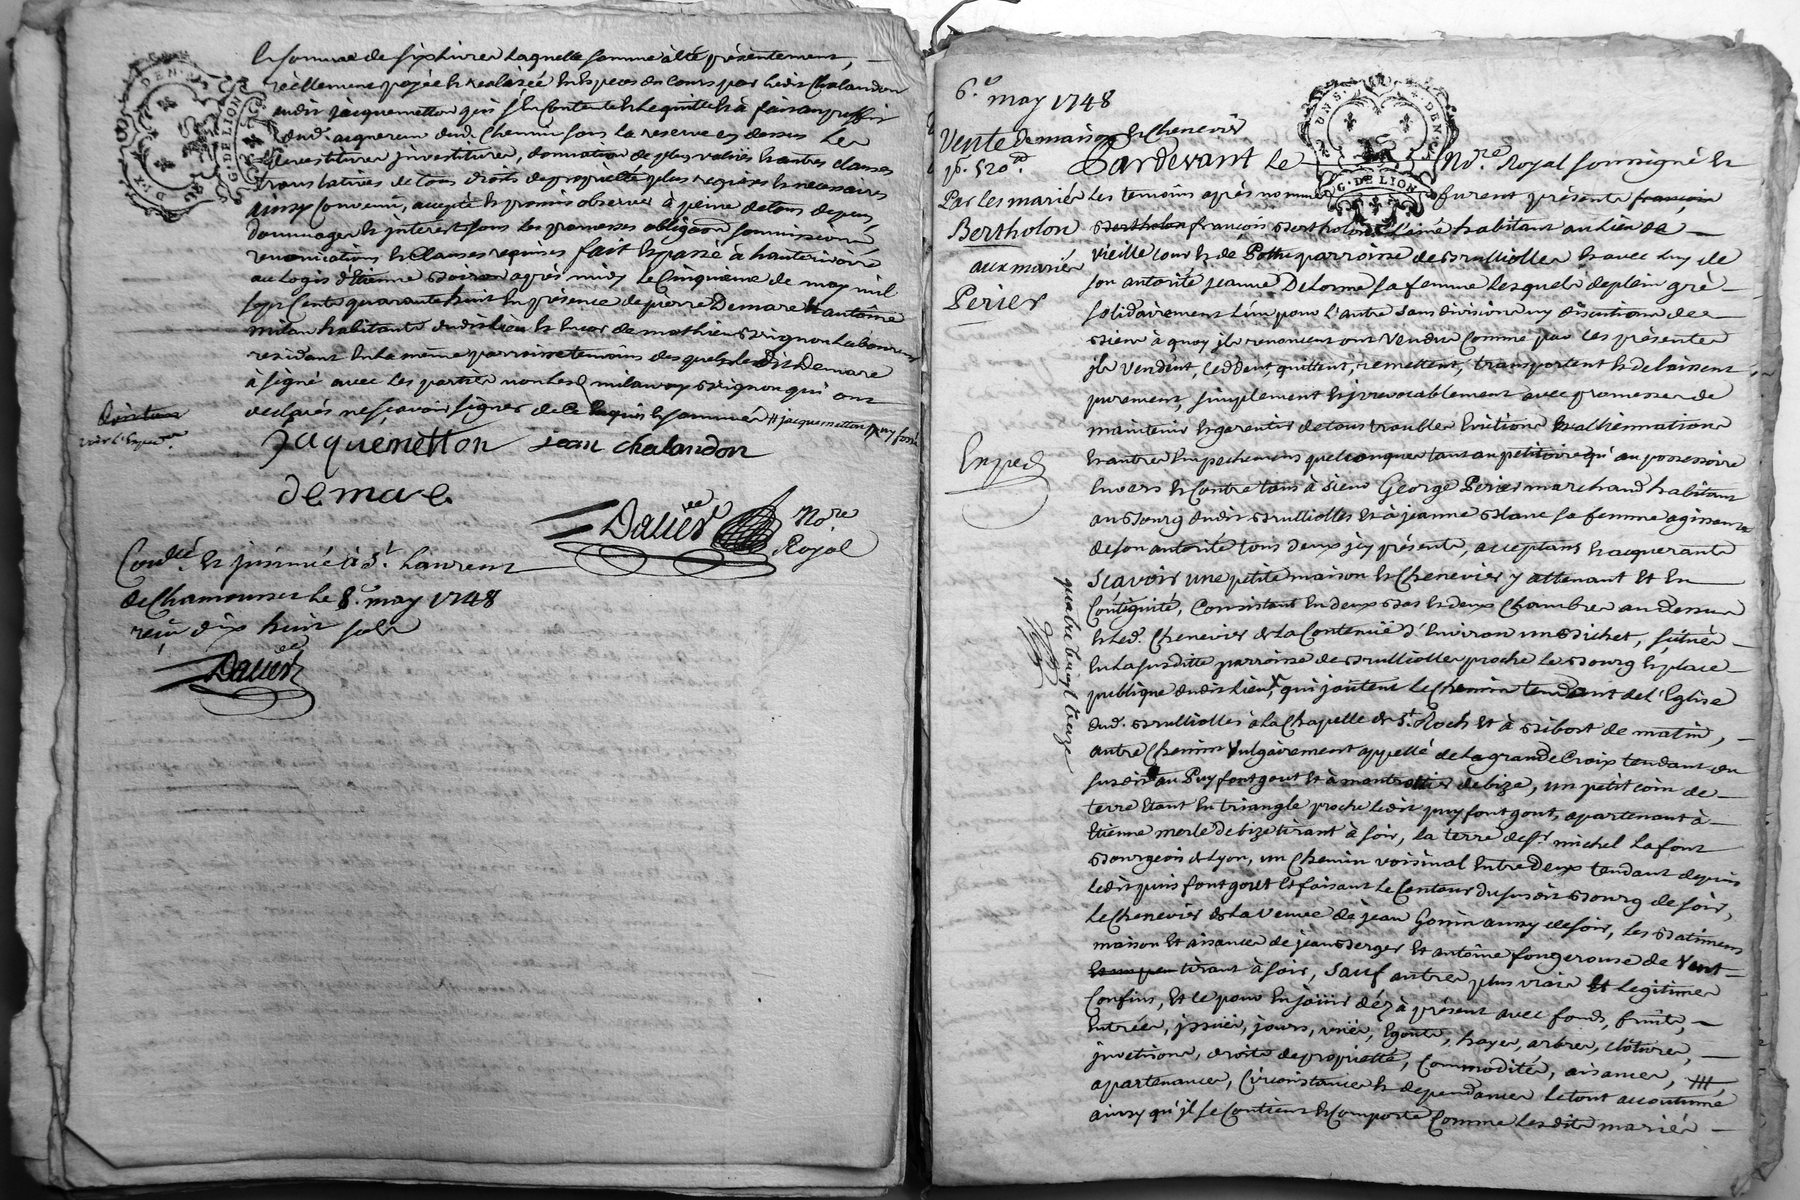 la somme de six livres laquelle somme à été présentement,
réèllement payée et realisée en Espèces du cours par ledit Chalandon
audit jaquemetton qui s'en contente et le quitte et à faisan
dud. chemin sous la reserve cy dessus
devestitures jnvestitures, donnation de plus values et autres clauses
translatives de tous droits de propriété plus requises et necessaires
ainsy Convenu, accepté et promis observer à peine de tous depens,
dommages et interest sous les promesses obligaõns soumissions
renonciations et Clauses requises fait et passé à hauterivoire
au logis d'Etienne après midy le Cinquieme de may mil
sept Cents quarante huit En présence de pierre Demare et antoine
milan habitants dudit lieu et Encor de mathieu Laboureur
residant En la même parroisse temoins desquels ledit Demare
à signé avec les parties non lesd. milan ny qui ont
declarés ne sçavoir signer de ce Enquis et sommés jacquemetton
Jaquemetton jean chalandon
demare
Dalier Nore.
Royal
Conllé. et jnsinué à St. Laurent
de Chamousset le 8e. may 1748
reçu dix huit sols
Dalier
6e. may 1748
Vente de maison et Chenevier
pr. 520 lt.
Par les mariés
Bertholon
aux mariés
Perier
Exped
Pardevant Le Nore. Royal soussigné et
les temoins après nommés furent présents françois
Bertholon françois Bertholon L'ainé habitant au lieu de
vieille cour et de Pothe parroisse de Brulliolles et avec luy de
son autorité jeanne Delorme sa femme lesquels de plein gré
solidairement l'un pour l'autre sans division ny discution de
biens à quoy jls renoncent ont Vendu comme par ces présentes
jls vendent, ceddent, quittent, remettent, transportent et delaissent
purement, simplement et jrrevocablement avec promesse de
maintenir et garentir de tous troubles Evictions et alliennations
et autres Empechemens quelconques tant au petitoire qu'au possessoire
Envers et Contre tous à sieur George Perier marchand habitant
au Bourg dudit Brulliolles et à jeanne Blanc sa femme agissants
de son autorité tous deux jcy présents, acceptans et acquerants
Sçavoir une petite maison et Chenevier y attenant et En
Contiguité, Consistant En deux Bas et deux Chambres au dessus
et led. Chenevier de La Contenüe d'Environ un Bichet, situés
En la susditte parroisse de Brulliolles proche le Bourg et place
publique dudit lieu, qui joutent le Chemin tendant de l'Eglise
dud. Brulliolles à la Chapelle de St. Roch et à Bibost de matin,
autre Chemin vulgairement appellé de La grande Croix tendant du
susdit au Puy fontgout et à montrottier de bize, un petit coin de
terre Etant En triangle proche ledit puy fontgout, apartenant à
Etienne merle de bize tirant à soir, la terre de Sr. michel Lafont
Bourgeois de Lyon, un Chemin voisinal Entredeux tendant depuis
ledit puis fontgout et faisant le Contour du susdit Bourg de soir,
Le Chenevier de La veuve de jean Gonin aussy de soir, les Batimens
maison et aisances de jean Berger et antoine fougerouse de Vent
tirant à soir, sauf autres plus vrais et legitimes
Confins, et ce pour En joüir déz à présent avec fonds, fruits,
Entrées, jssües, jours, vües, Egouts, hayes, arbres, clotures,
jnvetisons, droits de propriété, Commodités, aisances,
apartenances, Circonstances et dependances le tout accoutumé
ainsy qu'il se Contient et Comporte Comme lesdits mariés
quatre vingt treize